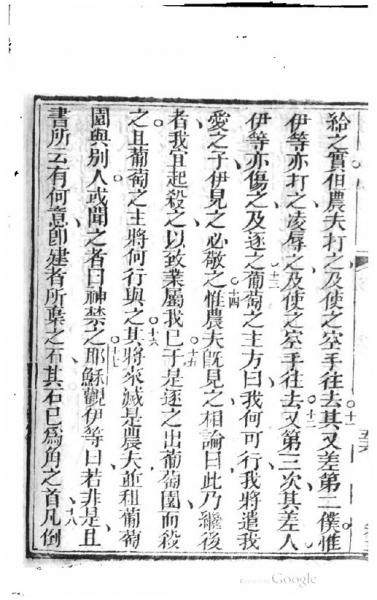 給之實但農夫打之及使之空手徃去其又差第二僕惟
十一
伊等亦打之凌辱之及使之空手徃去又第三次其差人
十二
伊等亦傷之及逐之葡萄之主方曰我何可行我將遣我
十三
愛之子伊見之必敬之惟農夫旣見之相論曰此乃繼後
十四
者我宜起殺之以致業屬我已于是逐之出葡萄園而殺
十五
之且葡萄之主將何行與之其將來滅是農夫並租葡萄
十六
園與別人或聞之者曰神禁之耶穌觀伊等曰若非是且
十七
書所云有何意卽建者所棄之石其石已爲角之首凡倒
十八
Google